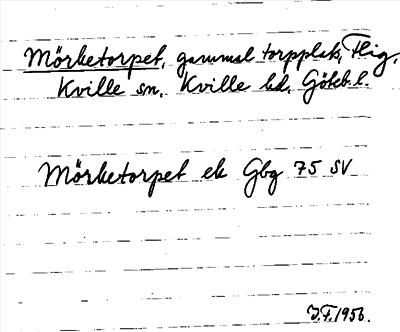 Mörketorpet, gammal torpplats, Hig,
Kville sn. Kville hd, Göteb. l.
Mörketorpet ek Gbg 75 SV
J.F. 1956.